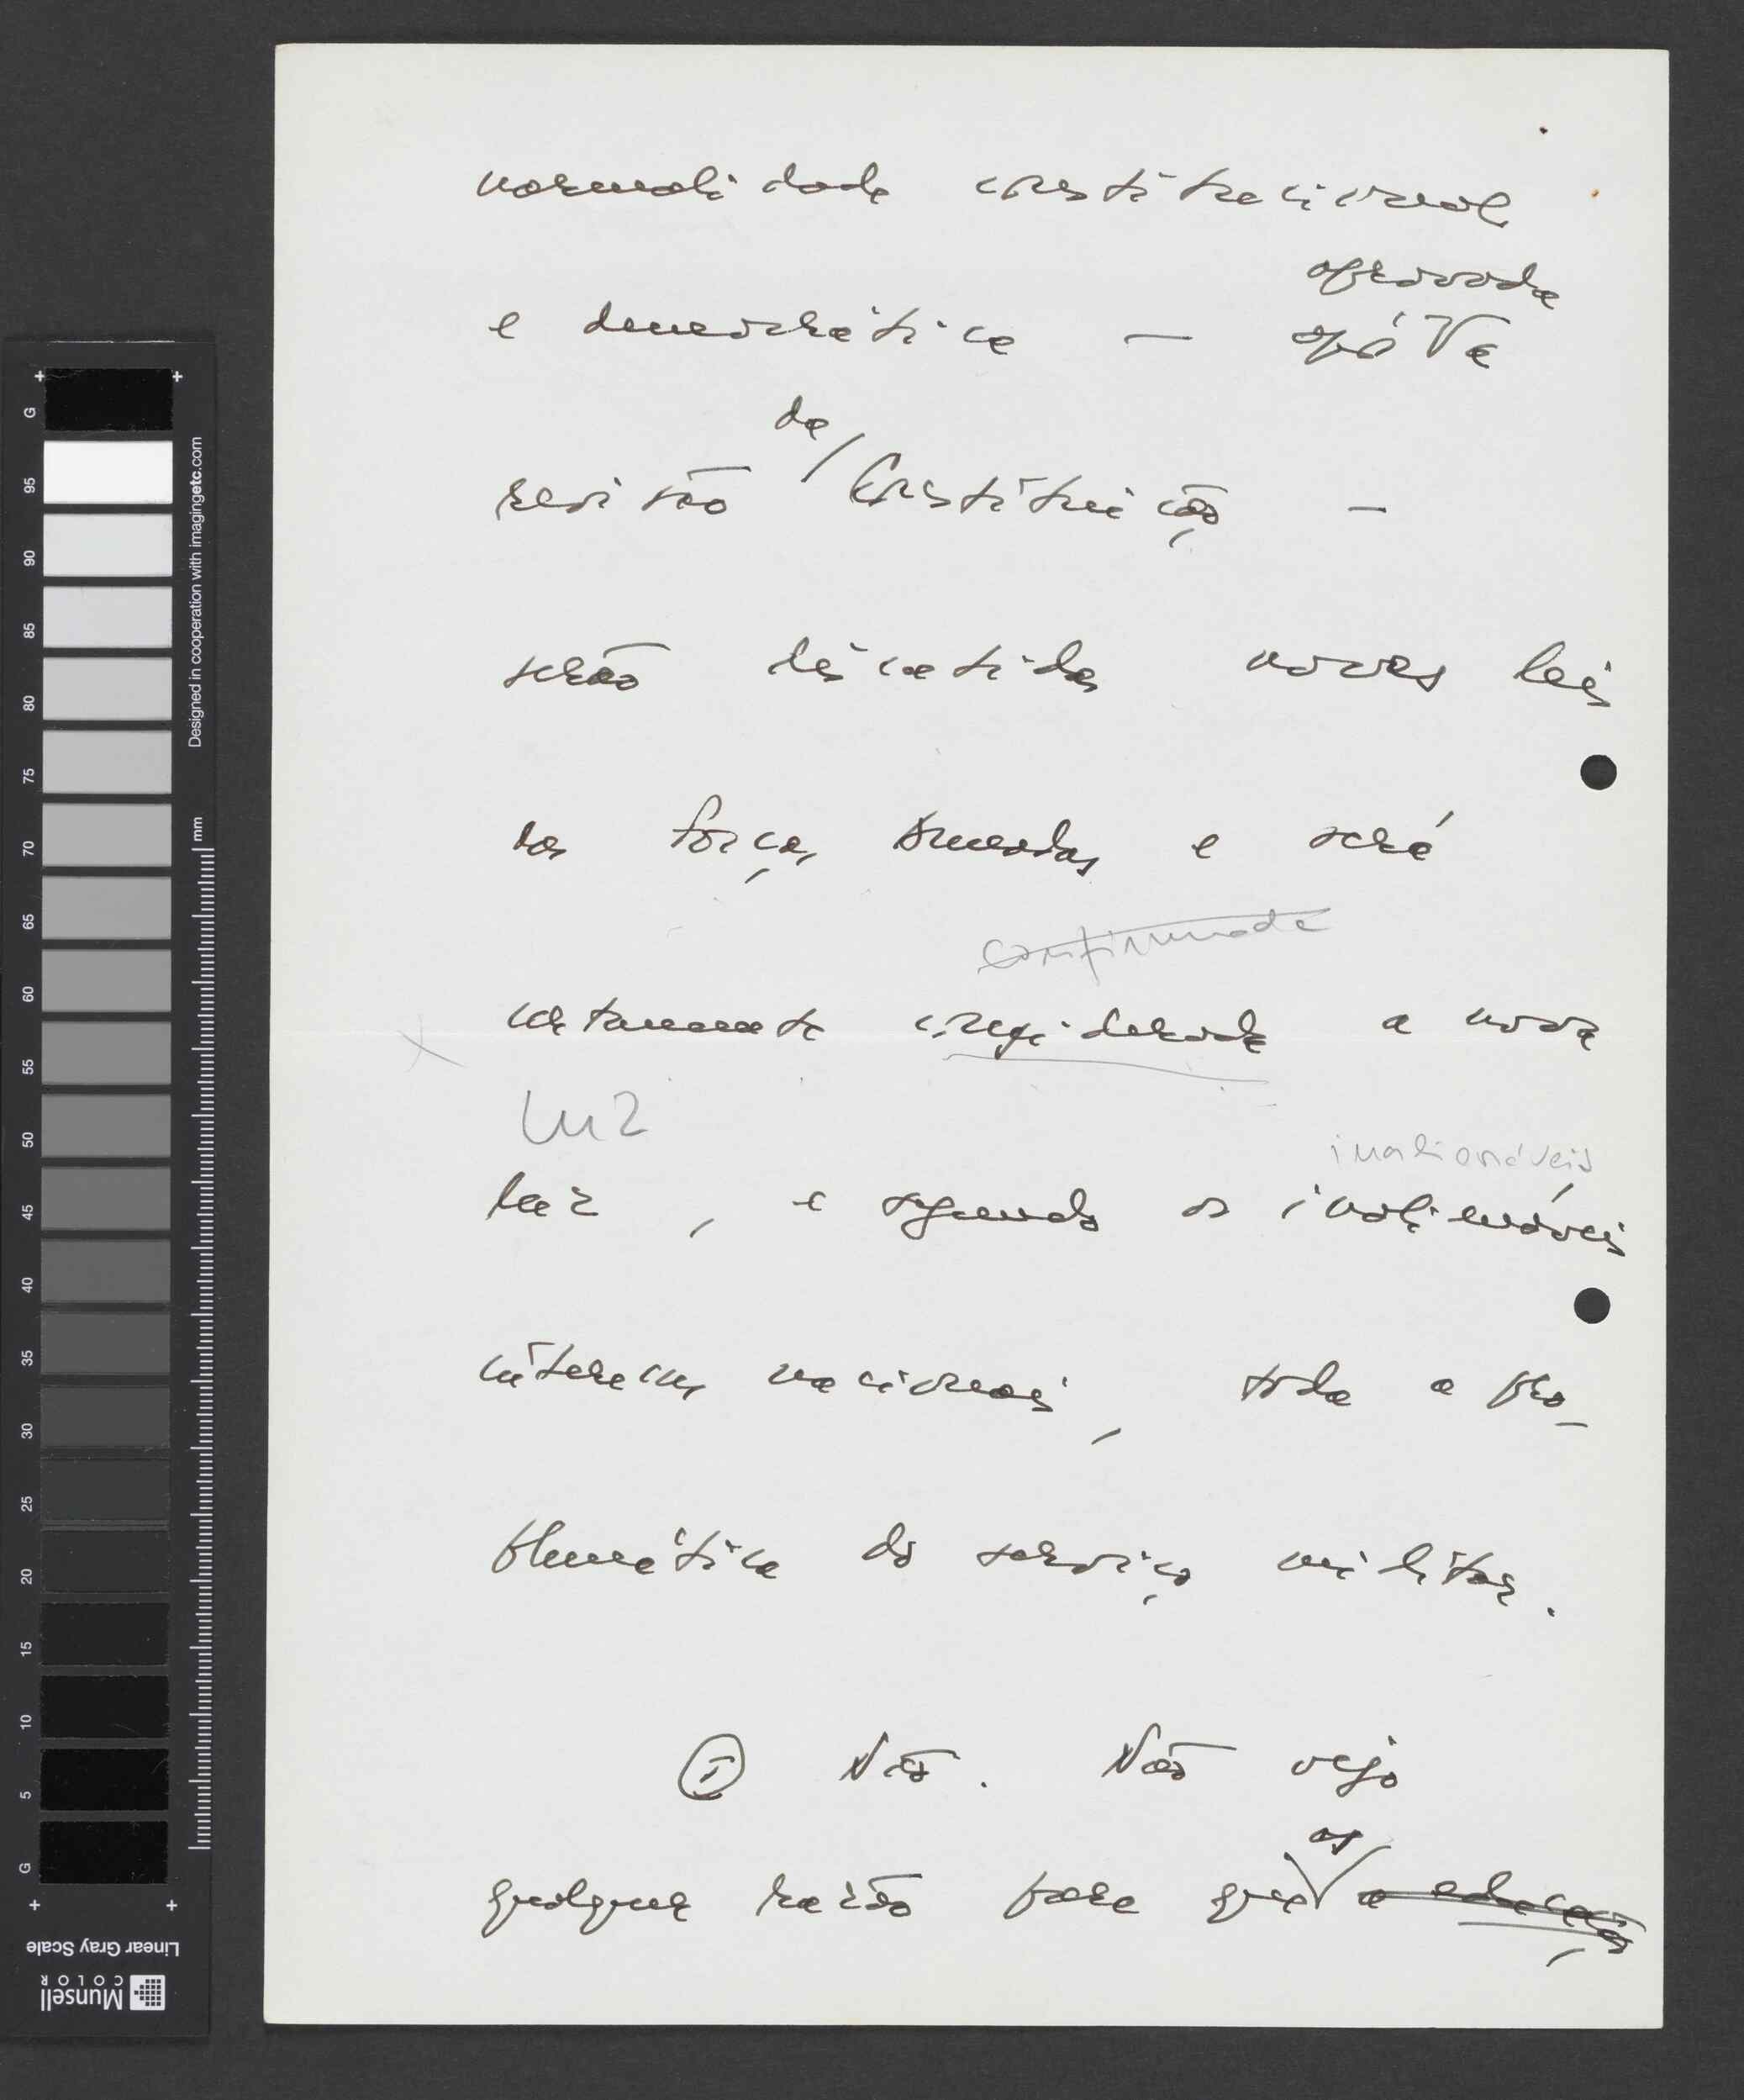 normalidade constitucional
aprovada
e democrática — após V a
da
revisão / Constituição —
serão discutidas novas leis
das Forças Armadas e será
confirmada
certamente considerada a nova
luz
luz, e segundo os inalienáveis
inalienáveis
interesses nacionais, toda a pro-
blemática do serviço militar.
Não. Não vejo
os
qualquer razão para que a educação
G
95
90
85
80
75
70
65
60
55
50
45
40
35
30
25
20
15
10
5
G
mm
Designed in cooperation with imagingetc.com
Linear Gray Scale
Munsell
COLOR